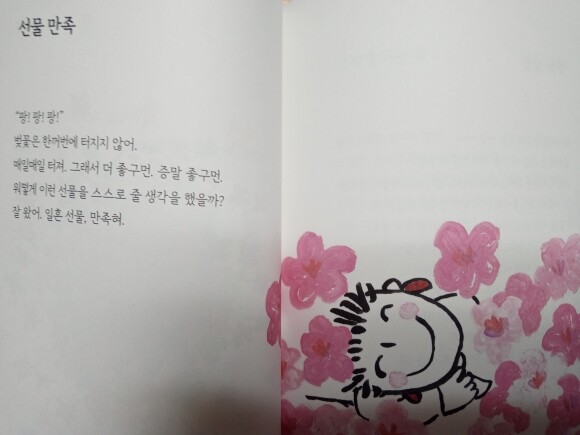 선물 만족
"팡! 팡! 팡!"
벚꽃은 한꺼번에 터지지 않어.
매일매일 터져. 그래서 더 좋구먼. 증말 좋구먼.
워떻게 이런 선물을 스스로 줄 생각을 했을까?
잘 왔어. 일흔 선물, 만족혀.